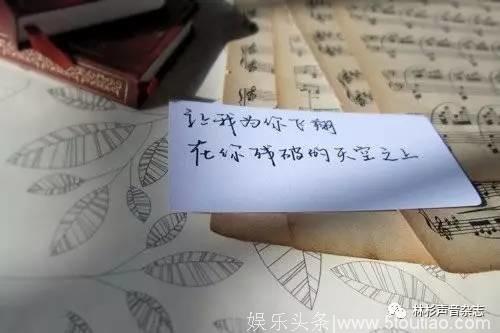 让我为你飞翔
在你残破的天空之上
林杉声音杂志
娱乐头条/www.51boutao.com